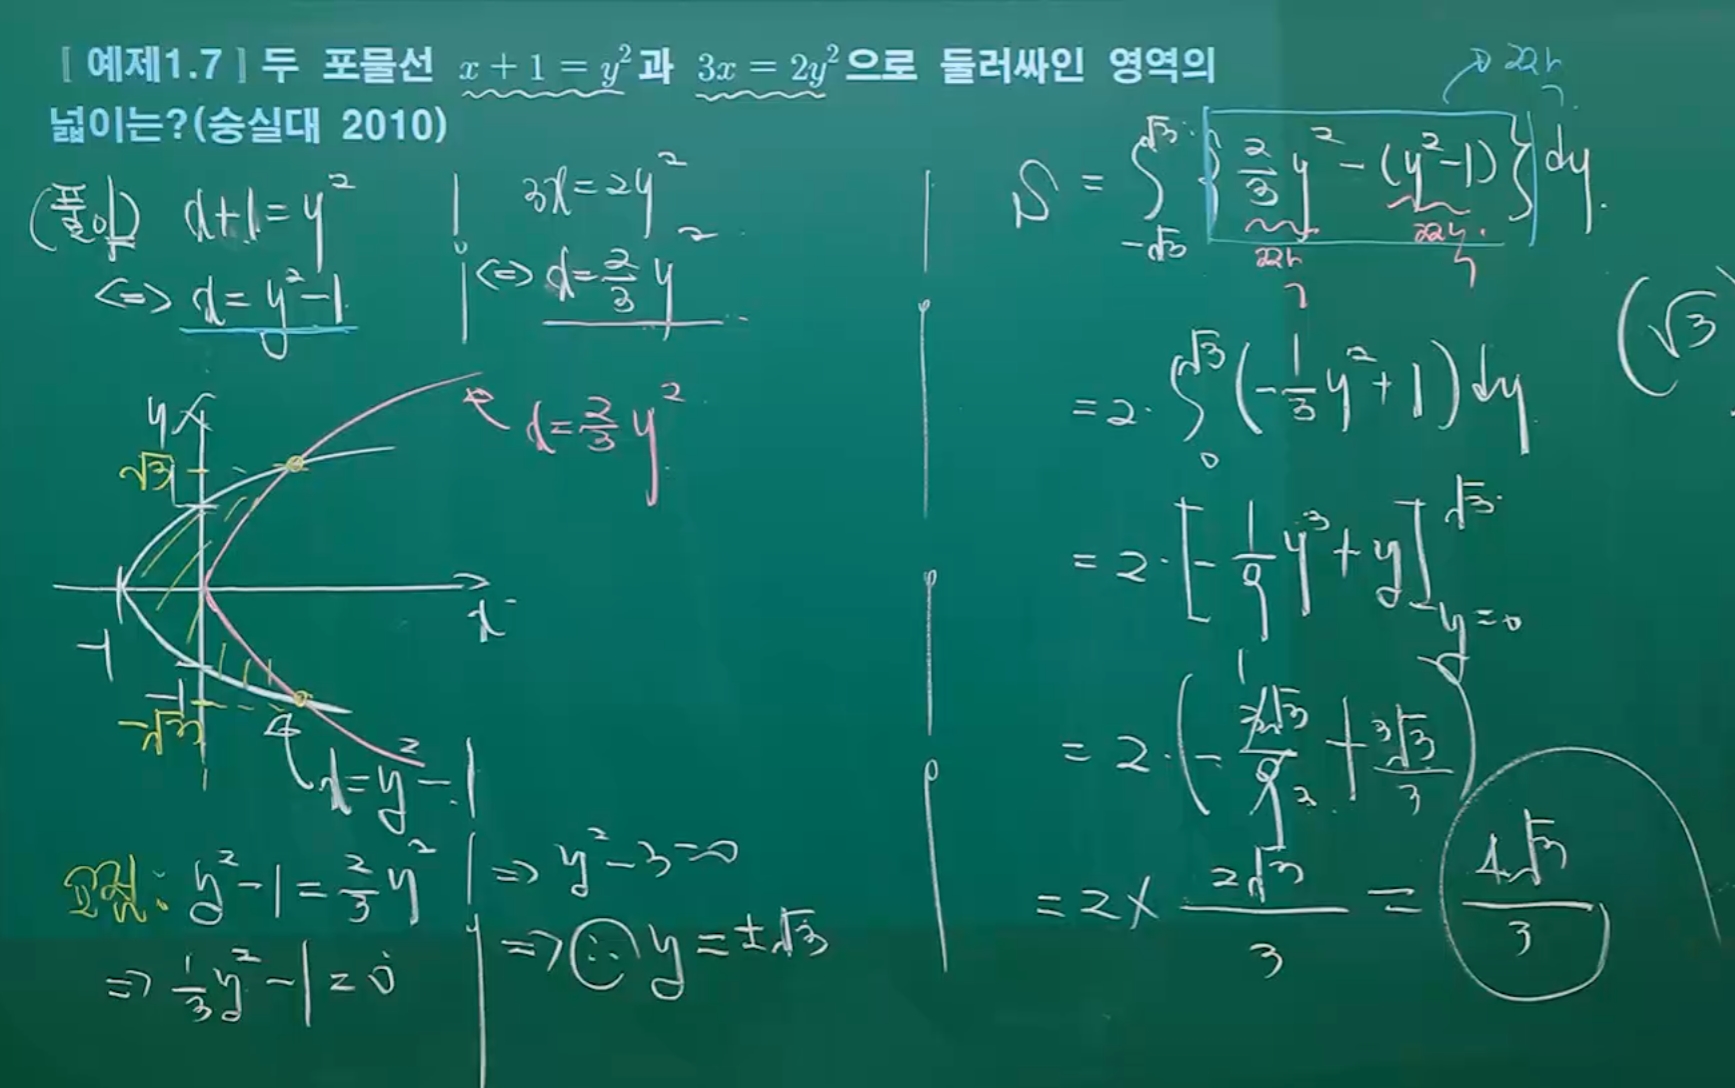 [예제1.7] 두 포물선 x + 1 = y²과 3x = 2y²으로 둘러싸인 영역의
넓이는?(숭실대 2010)
(풀이) x+1=y²
<=> x=y²-1
3x=2y²
<=> x=2/3 y²
y
√3
1
x=2/3 y²
x
-1
-1
-√3
x=y²-1
교점: y²-1=2/3 y²
=> 1/3 y²-1=0
=> y²-3=0
=> ∴ y=±√3
S = ∫_{-√3}^{√3} {2/3 y² - (y²-1)} dy.
=2·∫_0^{√3} (-1/3 y²+1) dy
=2·[-1/9 y³+y]_{y=0}^{√3}
=2·(-3√3/9 + 3√3/3)
=2× 2√3/3 = 4√3/3
(√3)